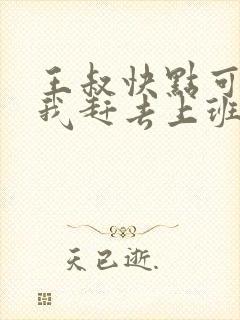 王叔快點可
我赶去上班
天已逝.